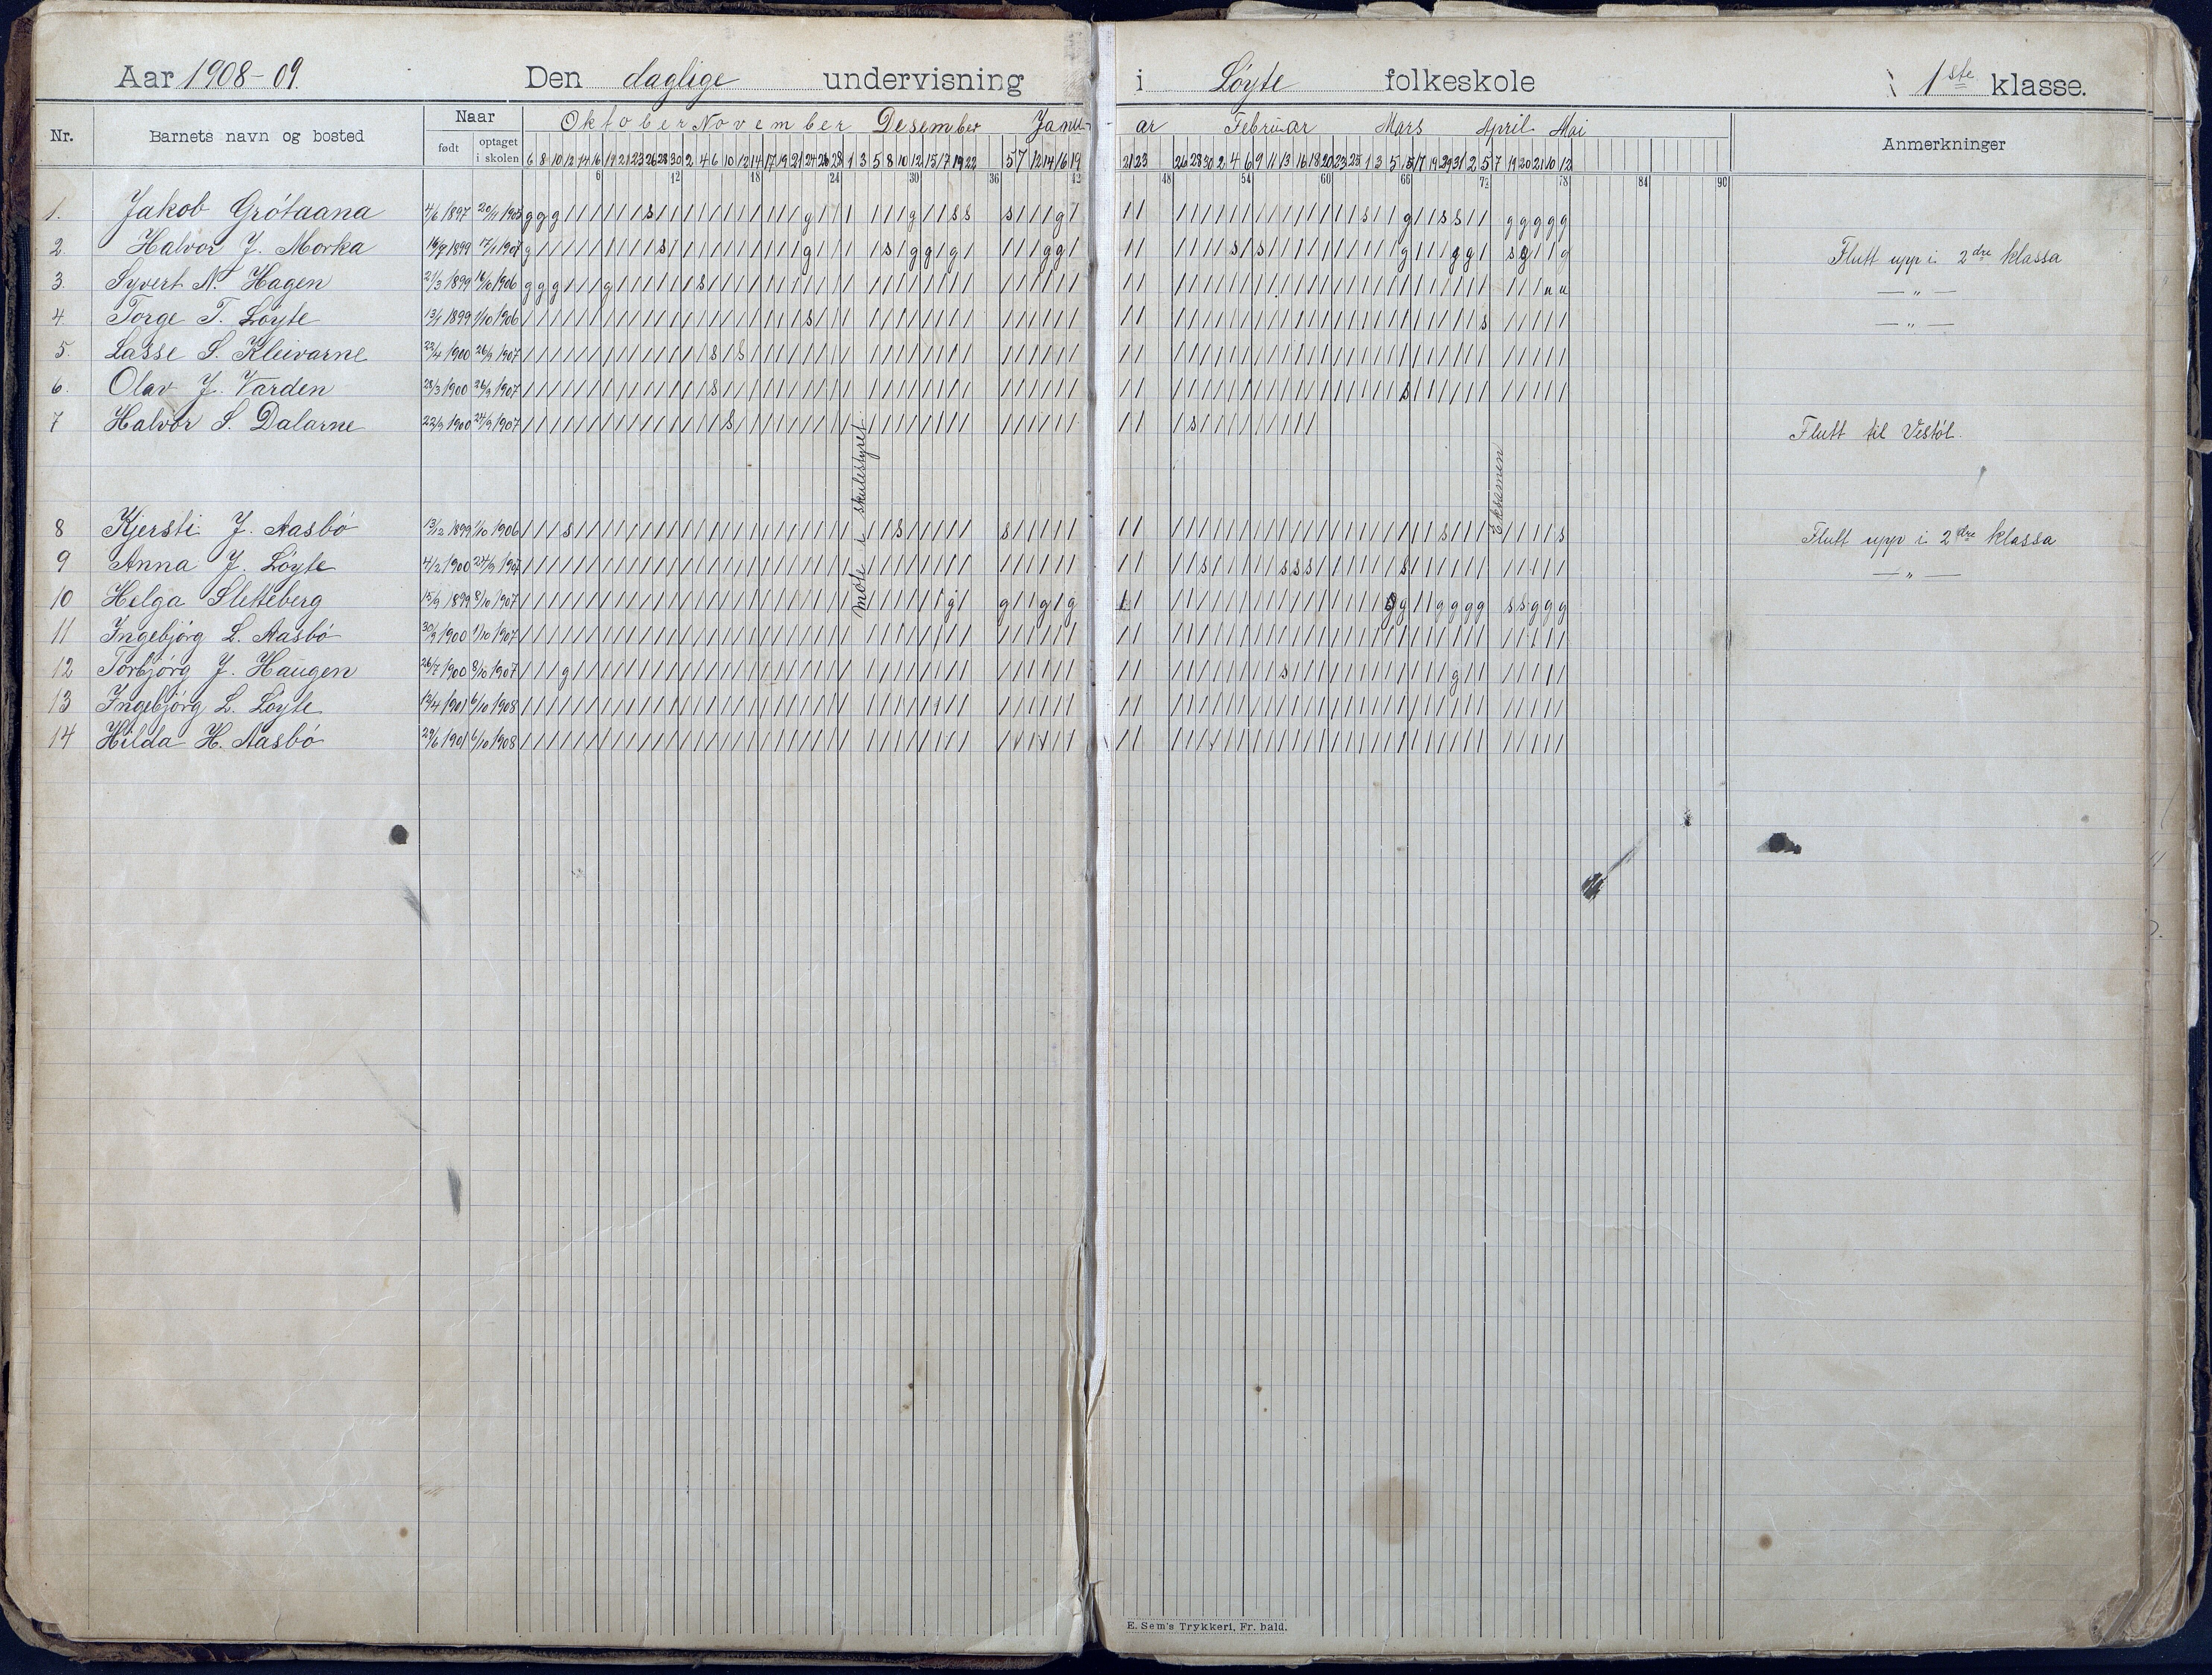 Aar 1908-09. Den daglige undervisning i Løyte folkeskole 1ste klasse.
Nr. Barnets navn og bosted Naar Oktober November Desember Janu- ar Februar Mars April Mai Anmerkninger
født optaget i skolen 6 8 10 12 14 16 19 21 23 26 28 30 2 4 6 10 12 14 17 19 21 24 26 28 1 3 5 8 10 12 15 17 19 22 5 7 12 14 16 19 21 23 26 28 30 2 4 6 9 11 13 16 18 20 23 25 1 3 5 15 17 19 29 31 2 5 7 19 20 21 10 12
6 12 18 24 30 36 42 48 54 60 66 72 78 84 90
1. Jakob Grótaana 4/6 1897 20/11 1905
2. Halvor J. Morka 16/9 1899 17/1 1907 Flutt upp i 2dre klassa
3. Syvert N. Hagen 21/3 1899 16/10 1906 — „ —
4. Torge T. Løyte 13/1 1899 1/10 1906 — „ —
5. Lasse S. Kleivarne 23/4 1900 26/9 1907
6. Olav J. Varden 28/3 1900 26/9 1907
7 Halvor S. Dalarne 22/9 1900 24/9 1907 Flutt til Vestól.
Møte i skulestyret
Eksamen
8 Kjersti J. Aasbó 13/12 1899 1/10 1906 Flutt upp i 2dre klassa
9 Anna J. Løyte 4/2 1900 24/9 1907 — „ —
10 Helga Sletteberg 15/9 1899 8/10 1907
11 Ingebjórg L. Aasbó 30/9 1900 1/10 1907
12 Torbjórg J. Haugen 26/7 1900 8/10 1907
13 Ingebjórg L. Løyte 19/4 1901 6/10 1908
14 Hilda H. Aasbó 29/6 1901 6/10 1908
E. Sem's Trykkeri, Fr. hald.